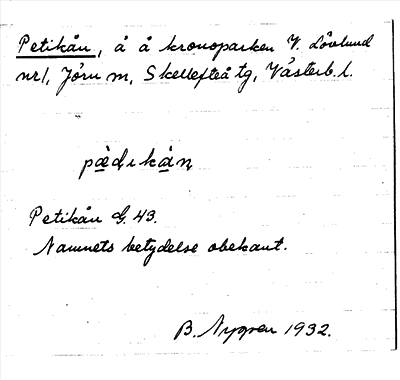 Petikån, å å kronoparken V. Lövlund
nr 1, Jörn m, Skellefteå tg, Västerb. l.
pæ̀dikàṇ
Petikån G. 43.
Namnets betydelse obekant.
B. Nygren 1932.